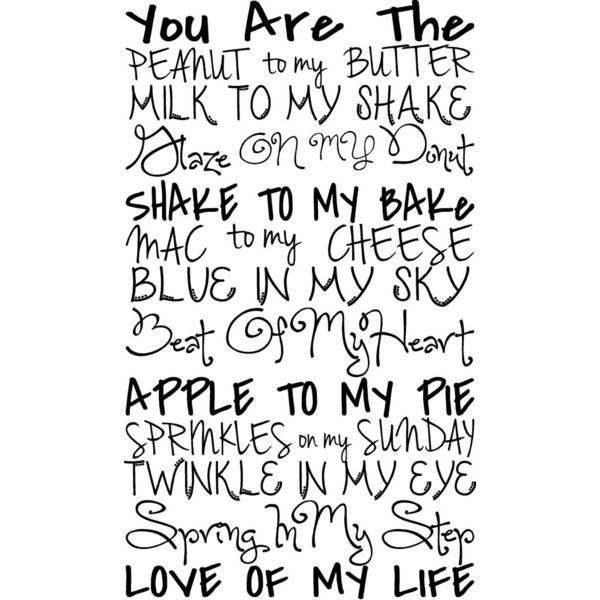 You Are The
PEANUT to my BUTTER
MILK TO MY SHAKE
Glaze ON MY Donut
SHAKE TO MY BAKe
MAC to my CHEESE
BLUE IN MY SKY
Beat Of My Heart
APPLE TO MY PIE
SPRINKLES on my SUNDAY
TWINKLE IN MY EYE
Spring In My Step
LOVE OF MY LIFE